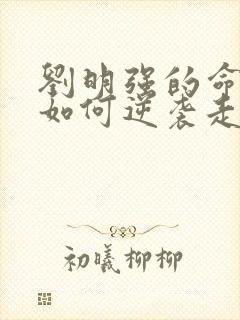 劉明强的命
如何逆袭走
初曦柳柳